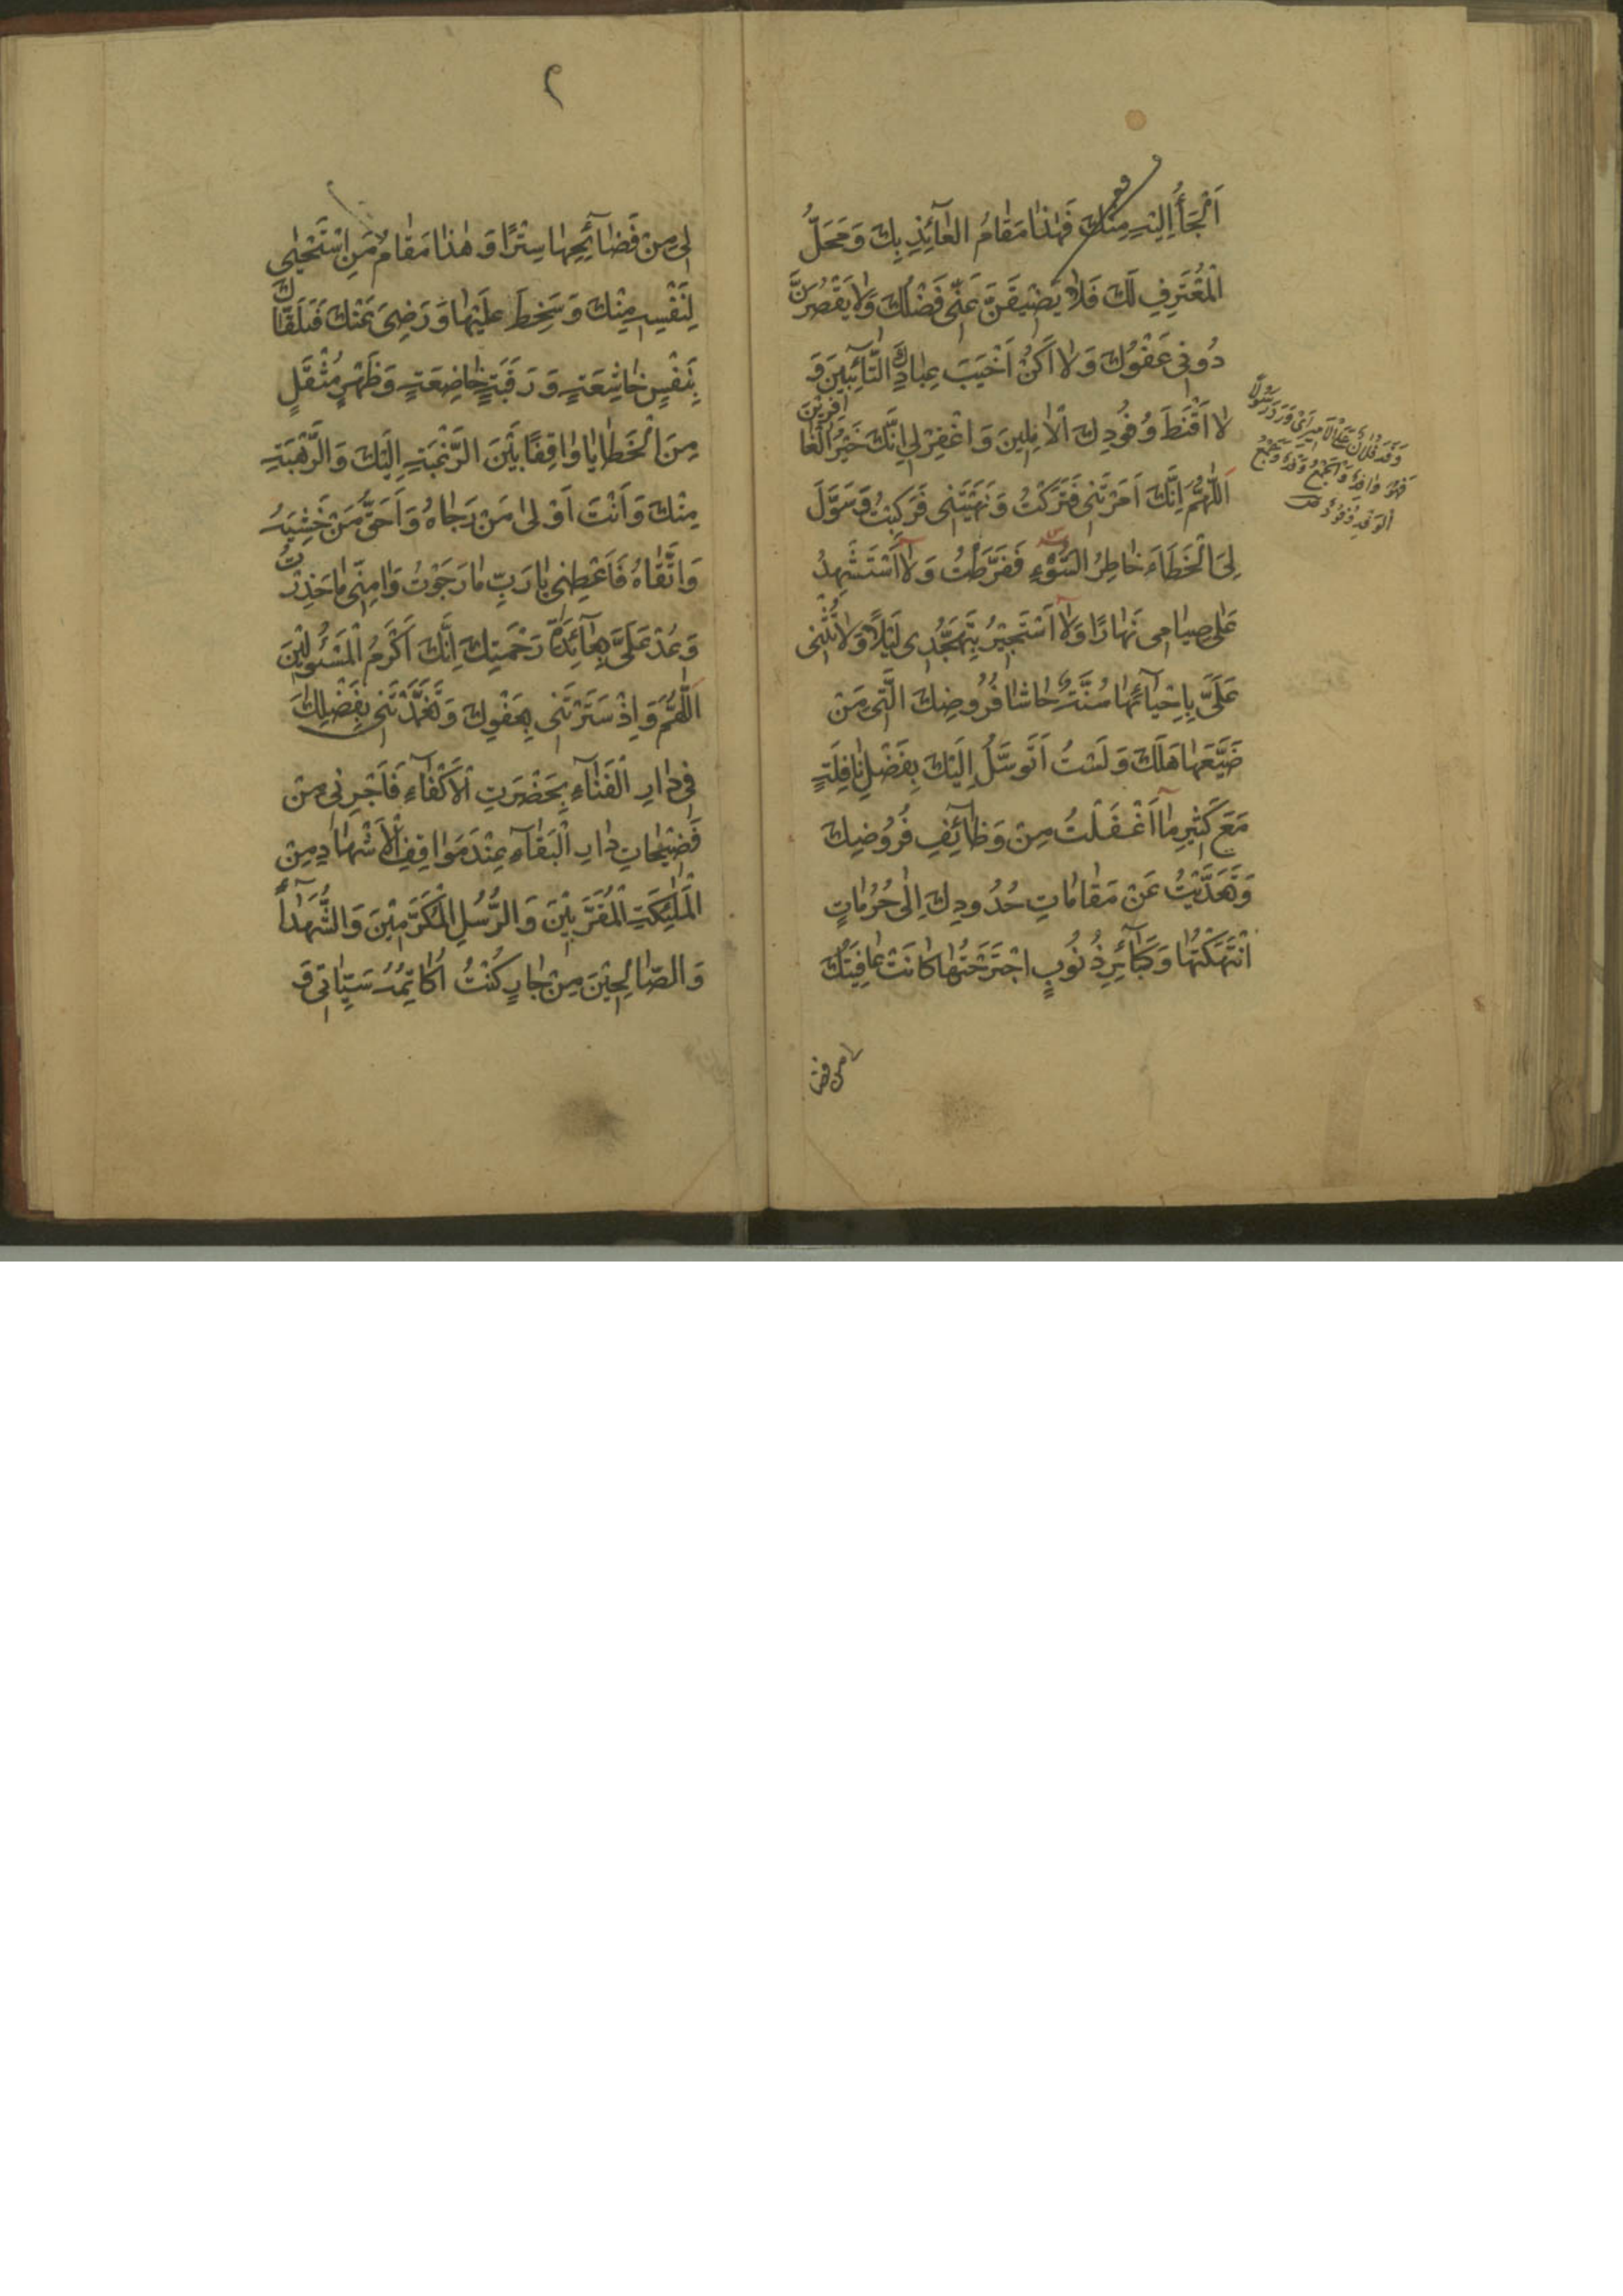 اَلْجَأُ اِلَيْهِ مِنْكَ فَهٰذَا مَقَامُ الْعَآئِذِ بِكَ وَمَحَلُّ
الْمُعْتَرِفِ لَكَ فَلَا يَضِيقَنَّ عَنِّي فَضْلُكَ وَلَا يَقْصُرَنَّ
دُونِي عَفْوُكَ وَلَا اَكُنْ اَخْيَبَ عِبَادِكَ التَّآئِبِينَ وَ
لَا اَقْنَطَ وُفُودِكَ الْآمِلِينَ وَاغْفِرْ لِي اِنَّكَ خَيْرُ الْغَافِرِيْنَ
اَللّٰهُمَّ اِنَّكَ اَمَرْتَنِي فَتَرَكْتُ وَنَهَيْتَنِي فَرَكِبْتُ وَسَوَّلَ
لِيَ الْخَطَاءَ خَاطِرُ السُّوْءِ فَفَرَّطْتُ وَلَا اَسْتَشْهِدُ
عَلٰى صِيَامِي نَهَارًا وَلَا اَسْتَجِيْرُ بِتَهَجُّدِي لَيْلًا وَلَا تُثْنِي
عَلَيَّ بِاِحْيَآئِهَا سُنَّةٌ حَاشَا فُرُوضِكَ الَّتِي مَنْ
ضَيَّعَهَا هَلَكَ وَلَسْتُ اَتَوَسَّلُ اِلَيْكَ بِفَضْلِ نَافِلَةٍ
مَعَ كَثِيرِ مَا اَغْفَلْتُ مِنْ وَظَآئِفِ فُرُوضِكَ
وَتَعَدَّيْتُ عَنْ مَقَامَاتِ حُدُودِكَ اِلٰى حُرُمَاتٍ
انْتَهَكْتُهَا وَكَبَآئِرِ ذُنُوبٍ اجْتَرَحْتُهَا كَانَتْ عَافِيَتُكَ
وَفَدَ فُلَانٌ عَلَى الْاَمِيرِ اَيْ وَرَدَ رَسُوْلًا
فَهُوَ وَافِدٌ وَالْجَمْعُ وَفْدٌ وَجَمْعُ
الْوَفْدِ وُفُوْدٌ
لى من فضا
٢
لِي مِنْ فَضَآئِحِهَا سِتْرًا وَهٰذَا مَقَامُ مَنِ اسْتَحْيٰى
لِنَفْسِهِ مِنْكَ وَسَخِطَ عَلَيْهَا وَرَضِيَ عَنْكَ فَتَلَقَّاكَ
بِنَفْسٍ خَاشِعَةٍ وَرَقَبَةٍ خَاضِعَةٍ وَظَهْرٍ مُثْقَلٍ
مِنَ الْخَطَايَا وَاقِفًا بَيْنَ الرَّغْبَةِ اِلَيْكَ وَالرَّهْبَةِ
مِنْكَ وَاَنْتَ اَوْلٰى مَنْ رَجَاهُ وَاَحَقُّ مَنْ خَشِيَهُ
وَاتَّقَاهُ فَاَعْطِنِي يَا رَبِّ مَا رَجَوْتُ وَاٰمِنِّي مَا حَذِرْتُ
وَعُدْ عَلَيَّ بِعَآئِدَةِ رَحْمَتِكَ اِنَّكَ اَكْرَمُ الْمَسْئُولِيْنَ
اَللّٰهُمَّ وَاِذْ سَتَرْتَنِي بِعَفْوِكَ وَتَغَمَّدْتَنِي بِفَضْلِكَ
فِي دَارِ الْفَنَآءِ بِحَضْرَةِ الْاَكْفَآءِ فَاَجِرْنِي مِنْ
فَضِيْحَاتِ دَارِ الْبَقَآءِ عِنْدَ مَوَاقِفِ الْاَشْهَادِ مِنَ
الْمَلٰئِكَةِ الْمُقَرَّبِيْنَ وَالرُّسُلِ الْمُكَرَّمِيْنَ وَالشُّهَدَآءِ
وَالصَّالِحِيْنَ مِنْ جَارٍ كُنْتُ اُكَاتِمُهُ سَيِّئَاتِي وَ